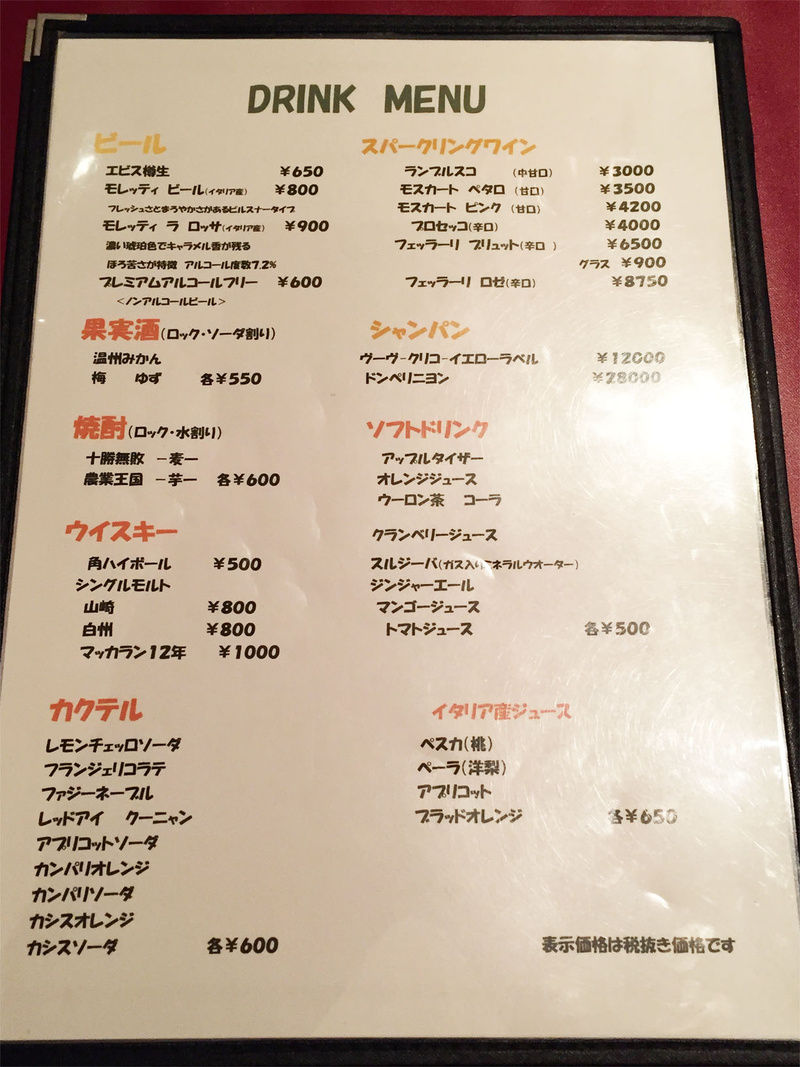 DRINK MENU
ビール
エビス樽生 ¥650
モレッティ ビール(イタリア産) ¥800
フレッシュさとまろやかさがあるピルスナータイプ
モレッティ ラ ロッサ(イタリア産) ¥900
濃い琥珀色でキャラメル香が残る
ほろ苦さが特徴 アルコール度数7.2%
プレミアムアルコールフリー ¥600
<ノンアルコールビール>
果実酒(ロック・ソーダ割り)
温州みかん
梅 ゆず 各¥550
焼酎(ロック・水割り)
十勝無敗 -麦-
農業王国 -芋- 各¥600
ウイスキー
角ハイボール ¥500
シングルモルト
山崎 ¥800
白州 ¥800
マッカラン12年 ¥1000
カクテル
レモンチェッロソーダ
フランジェリコラテ
ファジーネーブル
レッドアイ クーニャン
アプリコットソーダ
カンパリオレンジ
カンパリソーダ
カシスオレンジ
カシスソーダ 各¥600
スパークリングワイン
ランブルスコ (中甘口) ¥3000
モスカート ペタロ (甘口) ¥3500
モスカート ピンク (甘口) ¥4200
プロセッコ(辛口) ¥4000
フェッラーリ ブリュット(辛口 ) ¥6500
グラス ¥900
フェッラーリ ロゼ(辛口) ¥8750
シャンパン
ヴーヴ-クリコ-イエローラベル ¥12000
ドンペリニヨン ¥28000
ソフトドリンク
アップルタイザー
オレンジジュース
ウーロン茶 コーラ
クランベリージュース
スルジーバ(ガス入りミネラルウオーター)
ジンジャーエール
マンゴージュース
トマトジュース 各¥500
イタリア産ジュース
ペスカ(桃)
ペーラ(洋梨)
アプリコット
ブラッドオレンジ 各¥650
表示価格は税抜き価格です